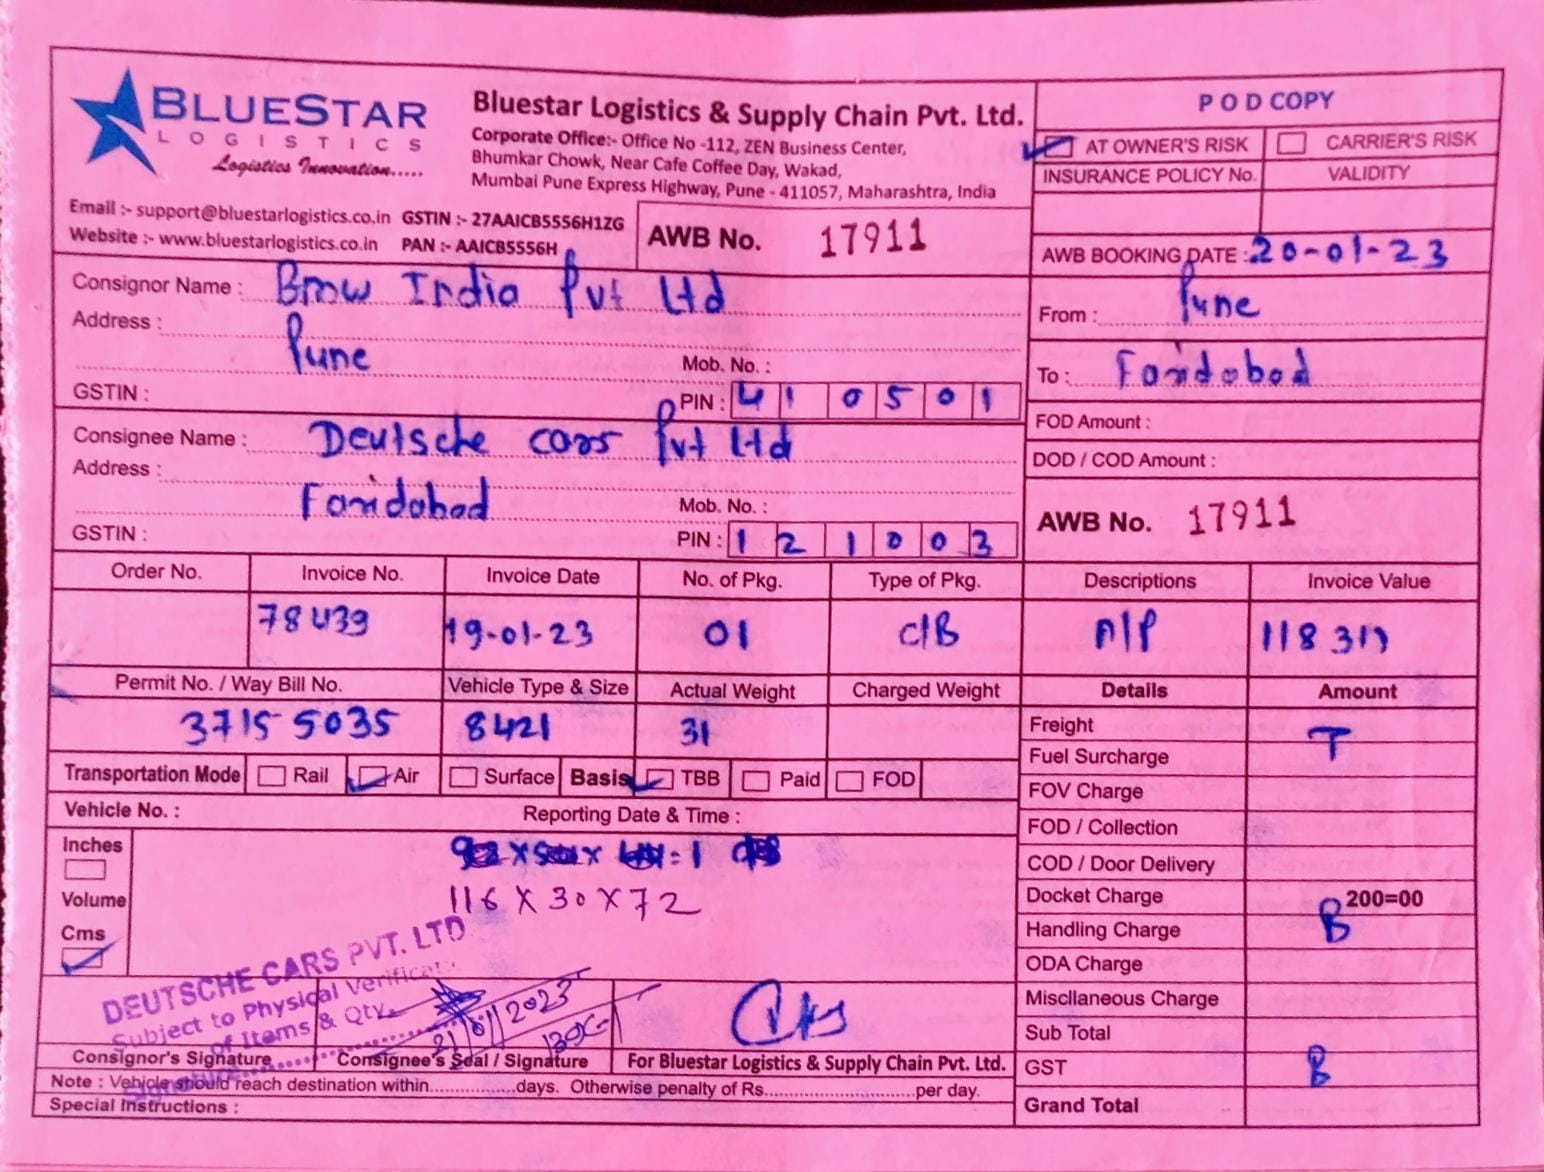 BLUESTAR
LOGISTICS
Logistics Innovation.....
Bluestar Logistics & Supply Chain Pvt. Ltd.
Corporate Office:- Office No -112, ZEN Business Center,
Bhumkar Chowk, Near Cafe Coffee Day, Wakad,
Mumbai Pune Express Highway, Pune - 411057, Maharashtra, India
P O D COPY
AT OWNER'S RISK CARRIER'S RISK
INSURANCE POLICY No. VALIDITY
Email :- support@bluestarlogistics.co.in GSTIN :- 27AAICB5556H1ZG
Website :- www.bluestarlogistics.co.in PAN :- AAICB5556H
AWB No. 17911
AWB BOOKING DATE : 20-01-23
Consignor Name : Bmw India Pvt Ltd
Address : Pune
Mob. No. :
GSTIN : PIN : 410501
From : Pune
To : Faridabad
FOD Amount :
DOD / COD Amount :
Consignee Name : Deutsche cars Pvt Ltd
Address : Faridabad
Mob. No. :
GSTIN : PIN : 121003
AWB No. 17911
Order No. Invoice No. Invoice Date No. of Pkg. Type of Pkg. Descriptions Invoice Value
78439 19-01-23 01 C/B A/P
Permit No. / Way Bill No. Vehicle Type & Size Actual Weight Charged Weight Details Amount
3715 5035 8421 31
Transportation Mode Rail Air Surface Basis TBB Paid FOD
Vehicle No. : Reporting Date & Time :
Inches
Volume
Cms
116 X 30 X 72
Freight T
Fuel Surcharge
FOV Charge
FOD / Collection
COD / Door Delivery
Docket Charge 200=00
Handling Charge B
ODA Charge
Miscllaneous Charge
Sub Total
GST B
Grand Total
DEUTSCHE CARS PVT. LTD
Subject to Physical Verificat
of Items & Qty.
21/01/2023
Consignor's Signature Consignee's Seal / Signature For Bluestar Logistics & Supply Chain Pvt. Ltd.
Note : Vehicle should reach destination within.................days. Otherwise penalty of Rs..............................per day.
Special Instructions :